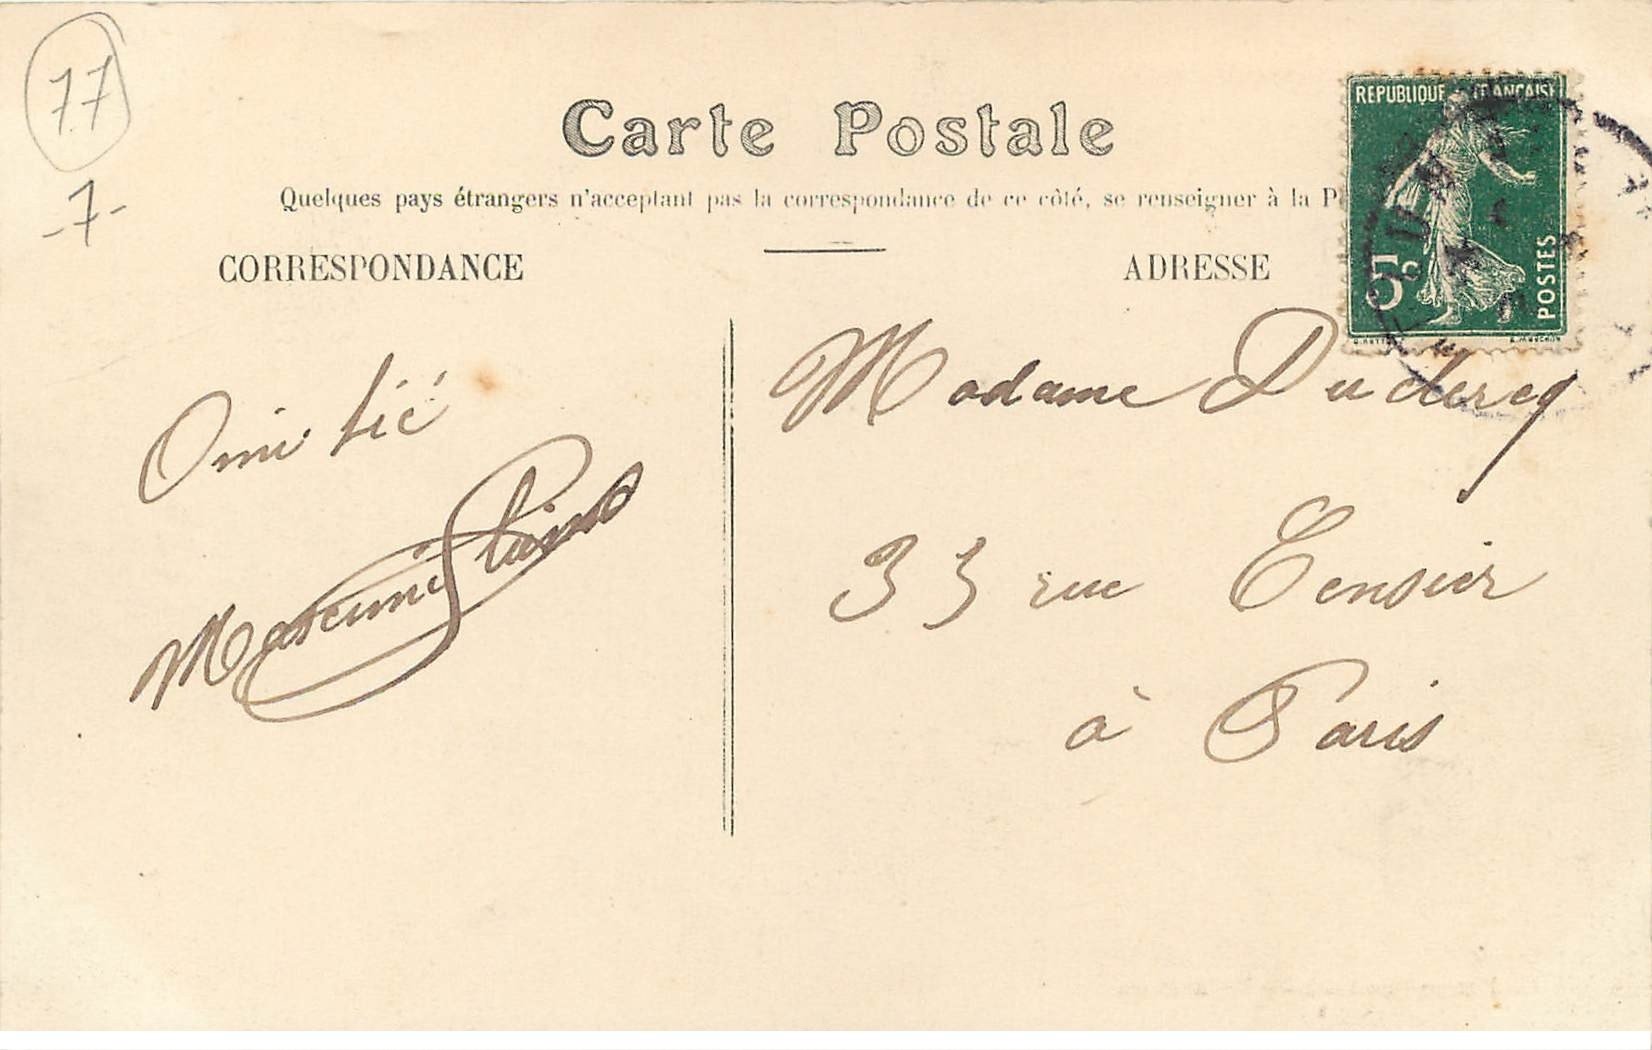 77
-7-
Carte Postale
Quelques pays étrangers n'acceptant pas la correspondance de ce côté, se renseigner à la P
CORRESPONDANCE
ADRESSE
REPUBLIQUE FRANÇAISE
5c
POSTES
Amitié
Madame Duclercq
33 rue Censier
à Paris